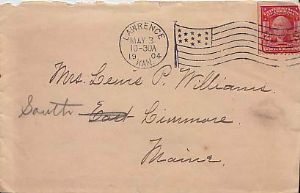 LAWRENCE
MAY 3
10-30A
1904
KAN.
Mrs. Lewis P. Williams
South East Linmore
Maine